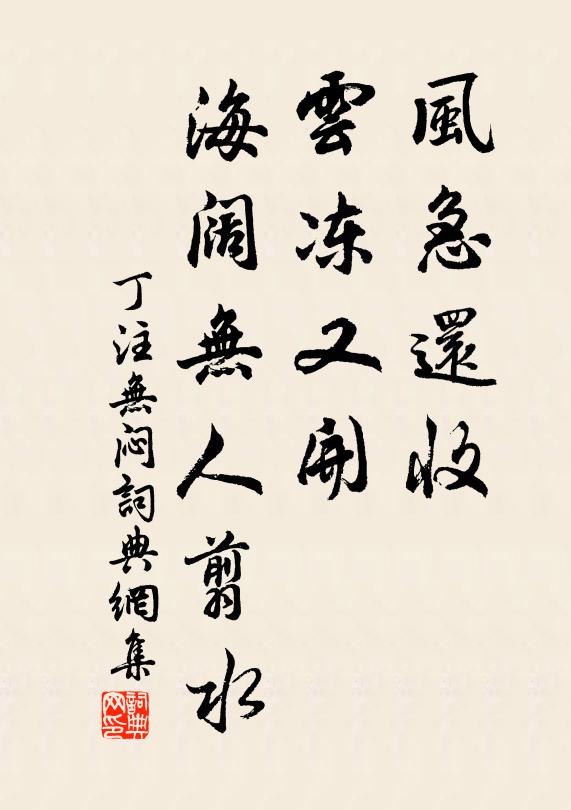 風急還收
雲冻又開
海阔無人翦水
丁注無闷詞典網集
詞典网印